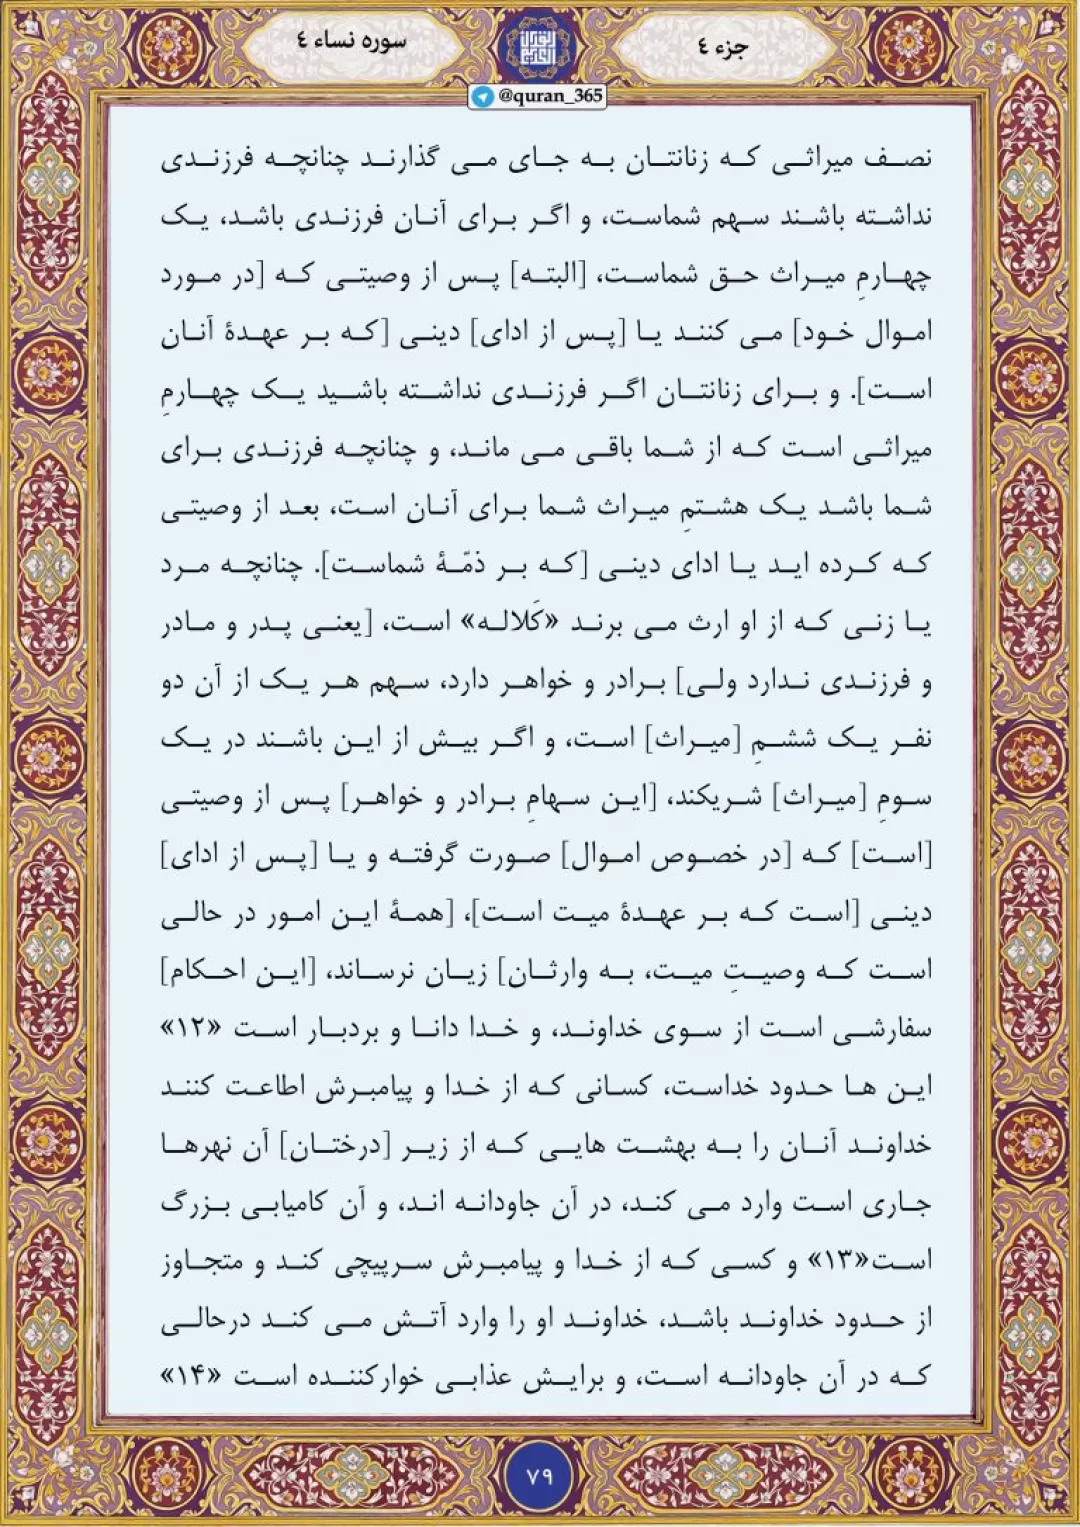 جزء ٤
سوره نساء ٤
@quran_365
نصف میراثی که زنانتان به جای می گذارند چنانچه فرزندی
نداشته باشند سهم شماست، و اگر برای آنان فرزندی باشد، یک
چهارمِ میراث حق شماست، [البته] پس از وصیتی که [در مورد
اموال خود] می کنند یا [پس از ادای] دینی [که بر عهدۀ آنان
است]. و برای زنانتان اگر فرزندی نداشته باشید یک چهارمِ
میراثی است که از شما باقی می ماند، و چنانچه فرزندی برای
شما باشد یک هشتمِ میراث شما برای آنان است، بعد از وصیتی
که کرده اید یا ادای دینی [که بر ذمّۀ شماست]. چنانچه مرد
یا زنی که از او ارث می برند «کَلاله» است، [یعنی پدر و مادر
و فرزندی ندارد ولی] برادر و خواهر دارد، سهم هر یک از آن دو
نفر یک ششمِ [میراث] است، و اگر بیش از این باشند در یک
سومِ [میراث] شریکند، [این سهامِ برادر و خواهر] پس از وصیتی
[است] که [در خصوص اموال] صورت گرفته و یا [پس از ادای]
دینی [است که بر عهدۀ میت است]، [همۀ این امور در حالی
است که وصیتِ میت، به وارثان] زیان نرساند، [این احکام]
سفارشی است از سوی خداوند، و خدا دانا و بردبار است «۱۲»
این ها حدود خداست، کسانی که از خدا و پیامبرش اطاعت کنند
خداوند آنان را به بهشت هایی که از زیر [درختان] آن نهرها
جاری است وارد می کند، در آن جاودانه اند، و آن کامیابی بزرگ
است«۱۳» و کسی که از خدا و پیامبرش سرپیچی کند و متجاوز
از حدود خداوند باشد، خداوند او را وارد آتش می کند درحالی
که در آن جاودانه است، و برایش عذابی خوارکننده است «۱۴»
۷۹